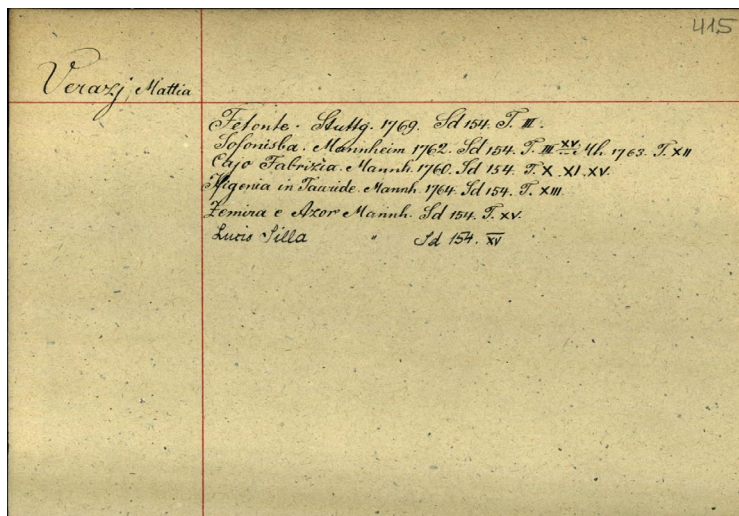 415
Verazj, Mattia
Fetonte. Stuttg. 1769. Sd 154. T. III.
Sofonisba. Mannheim 1762. Sd 154. T. III XV 1763. T. XII
Cajo Fabrizia. Mannh. 1760. Sd 154. T. X. XI. XV.
Ifigenia in Tauride. Mannh. 1764. Sd 154. T. XIII.
Zemira e Azor Mannh. Sd 154. T. XV.
Lucio Silla " Sd 154. XV